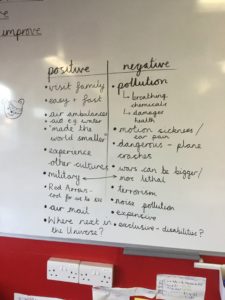 improve
positive
• visit family
• easy + fast
• air ambulances
• aid e.g. water
• "made the
world smaller"
• experience
other cultures
• military
• Red Arrows -
cool for us to see
• air mail
• Where next in
the Universe?
negative
• pollution
↳ breathing
chemicals
↳ damages
health
• motion sickness/
ear pain
• dangerous - plane
crashes
• wars can be bigger/
more lethal
• terrorism
• noise pollution
• expensive
• exclusive - disabilities?